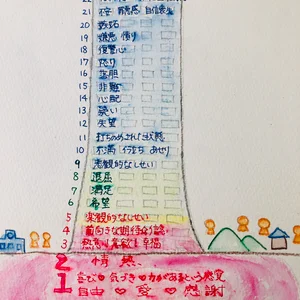 21 不安
20 嫉妬
19 嫌悪 憤り
18 復讐心
17 怒り
16 落胆
15 非難
14 心配
13 疑い
12 失望
11 打ちのめされた状態
10 不満 イライラ あせり
9 悲観的なしせい
8 退屈
7 満足
6 希望
5 楽観的なしせい
4 前向きな期待や信念
3 熱意 意欲と幸福
2 情熱
1 喜び♡気づき♡力があるという感覚
自由♡愛♡感謝